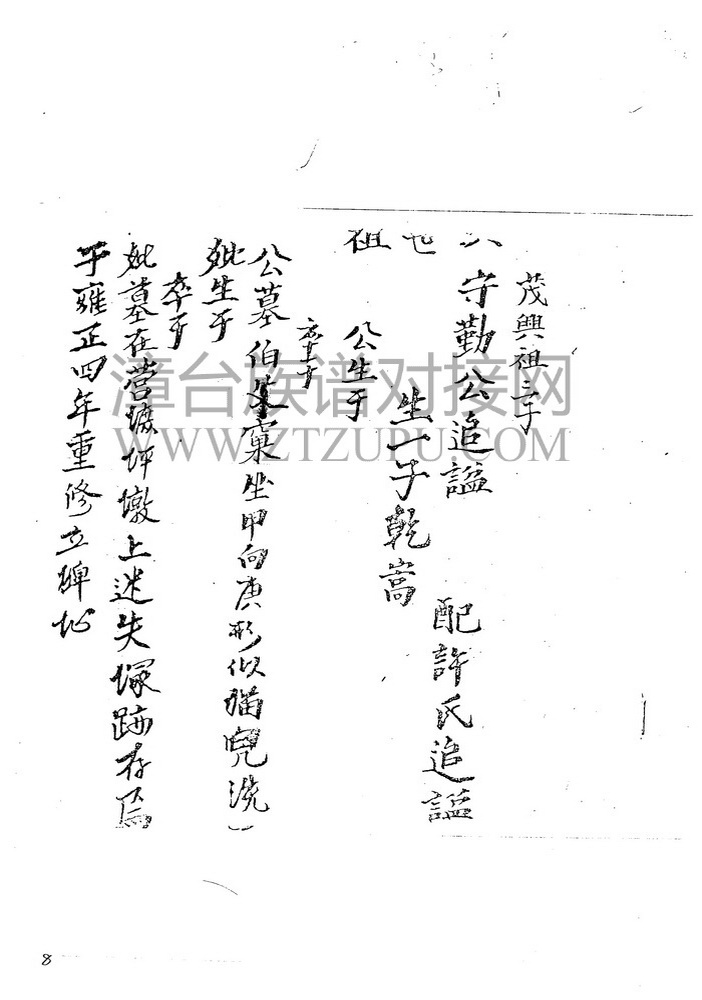 六世祖
茂興祖三子
守勤公追謚 配許氏追謚
生一子乾嵩
公生于
卒于
公墓伯 窠坐甲向庚形似猫兒洗
妣生于
卒于
妣墓在營 坪墩上迷失塚跡存焉
于雍正四年重修立碑
漳台族谱对接网
WWW.ZTZUPU.COM
8